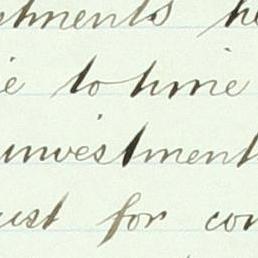 tments he
e to time
investment
ust for con